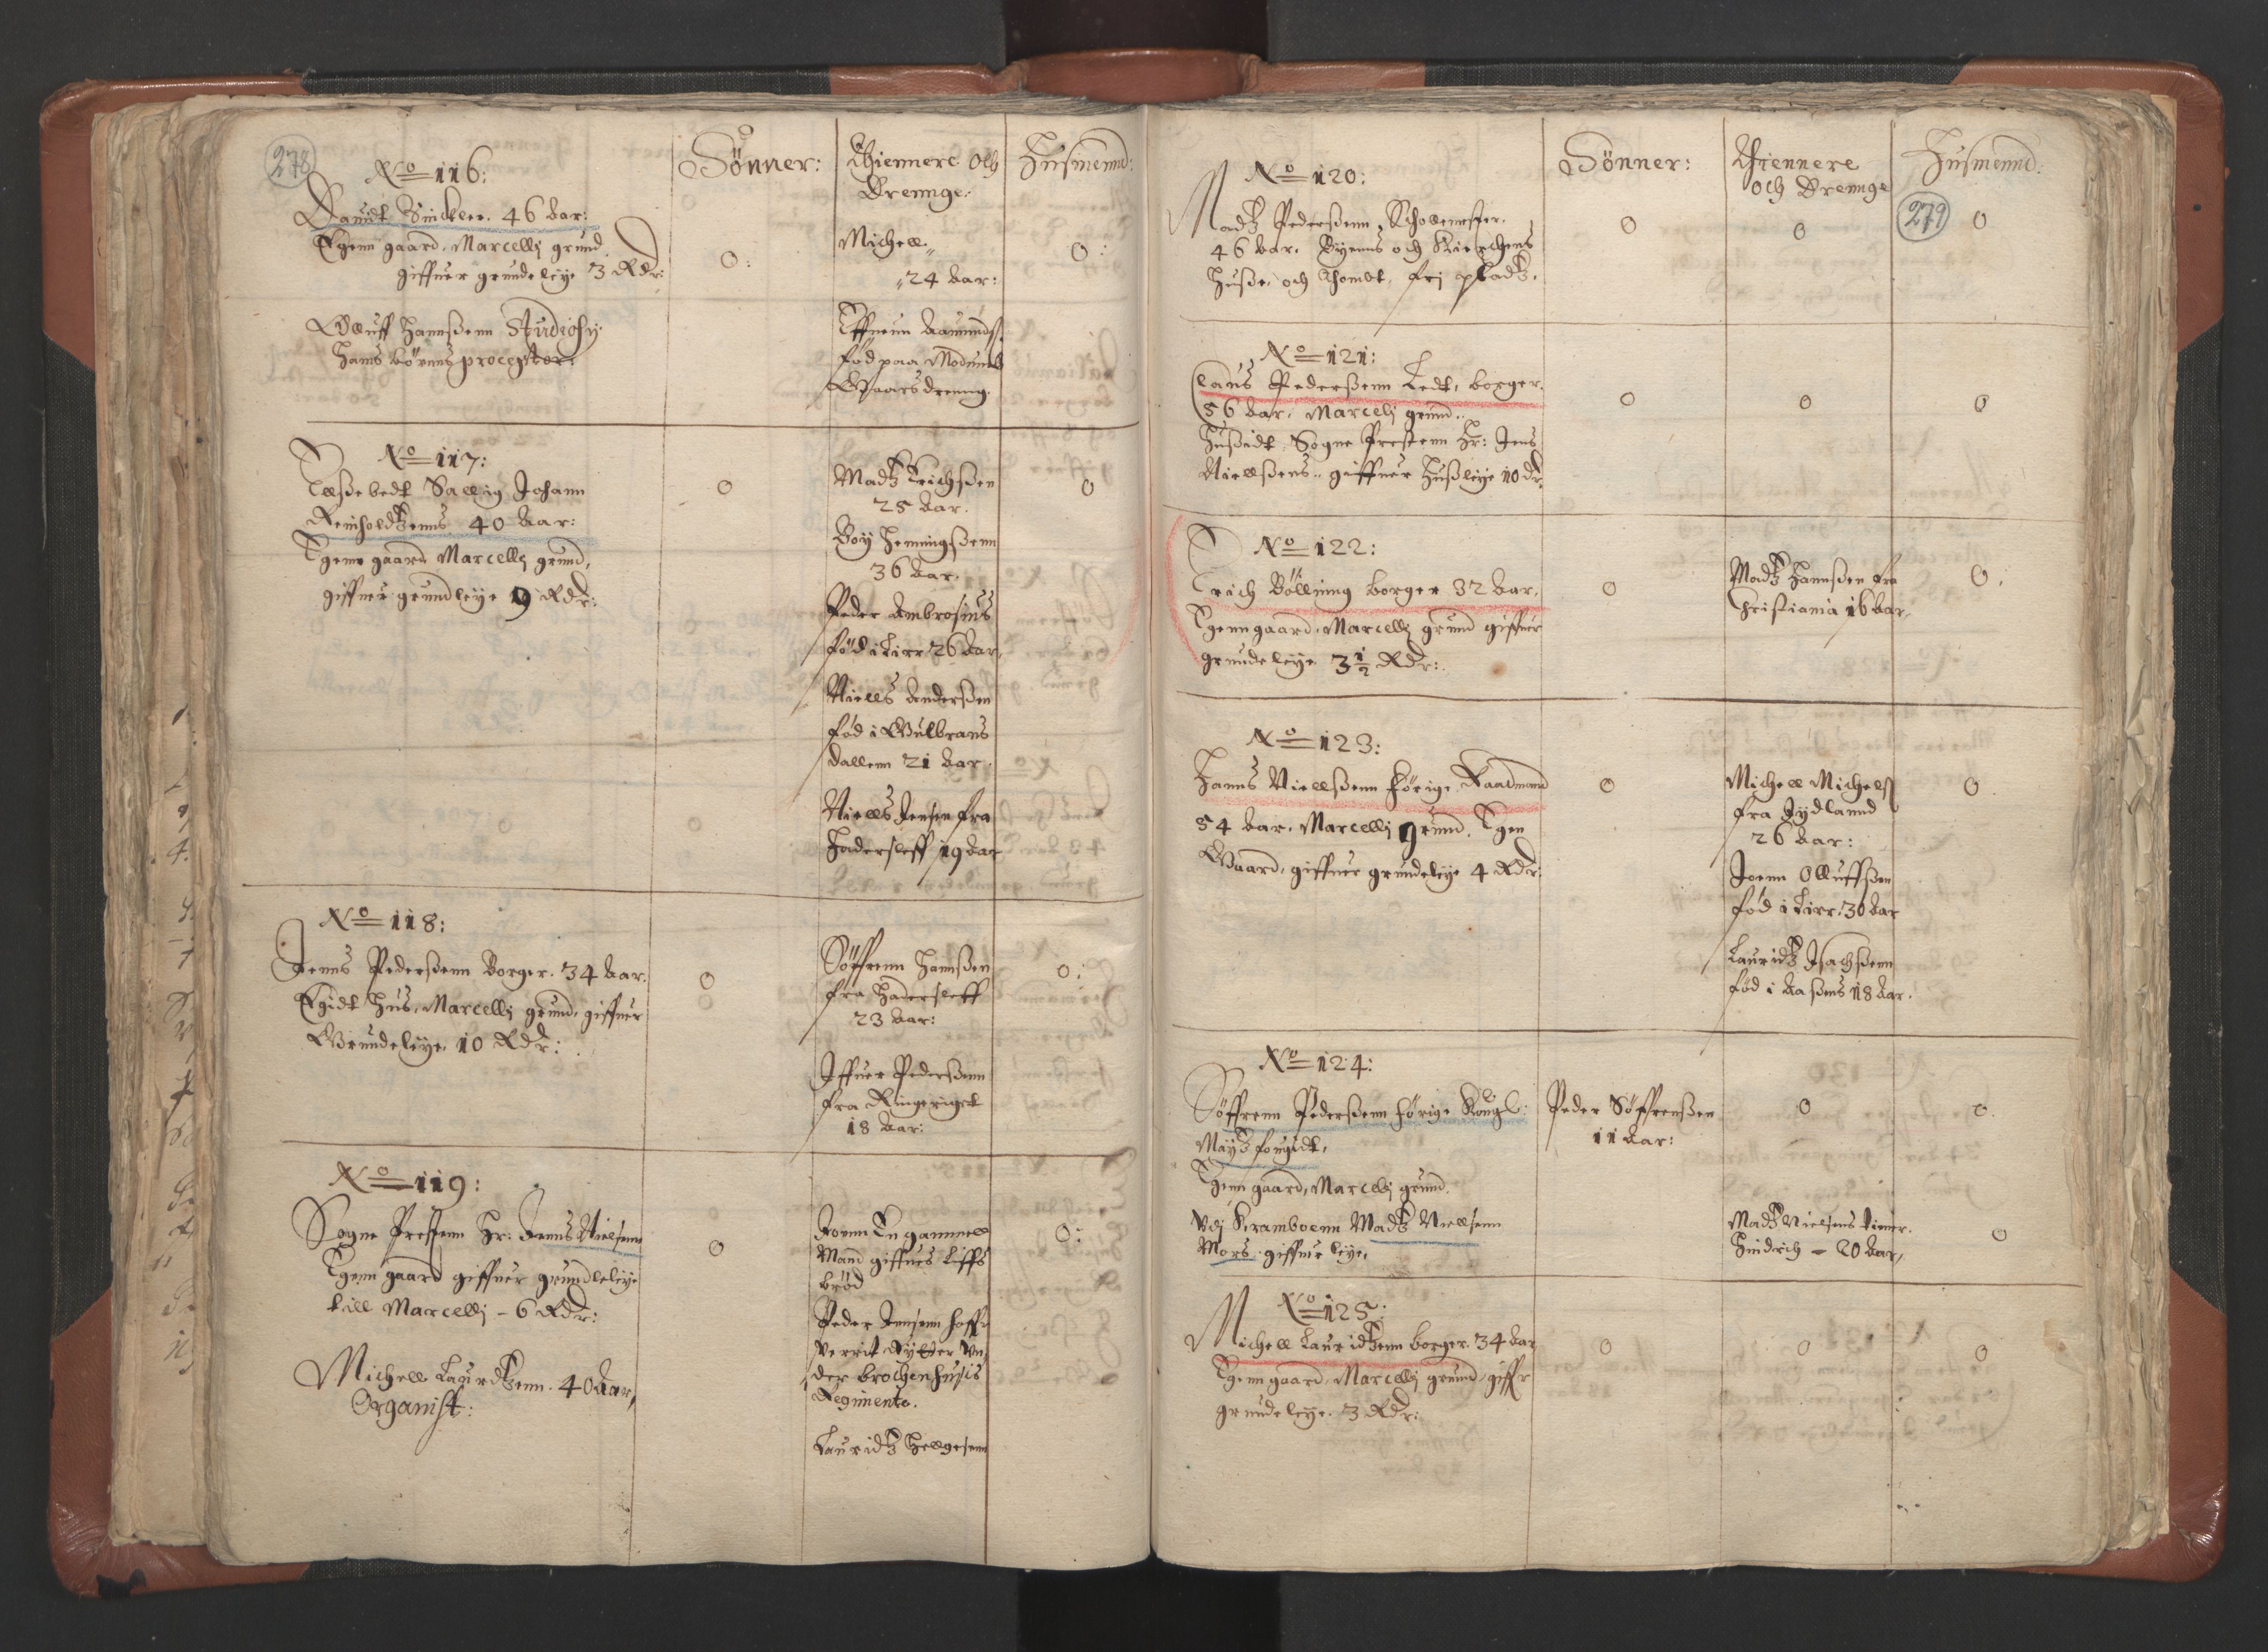 278
No 116:
Sönner:
Thiennere Och
Drennge:
Husmennd:
Dauidt Sinckler. 46 Aar:
Egenn gaard, Marcellj grund,
giffuer grundeleye 3 Rdr:
0:
Michell
24 Aar:
0:
Olluff Hannßenn Studiosus
Hans börnns præceptor:
född paa Modumb
Gaarsdreng.
No 117:
Ellßebedt Sallig Johann
Reinholdtzenns 40 Aar:
Egenn gaard Marcellj grund,
giffuer grundleye 9 Rdr:
0
Madtz Erichßen
25 Aar.
Boy Henningßenn
36 Aar.
Peder Ambrosius
född i Lier 26 Aar,
Niells Anderßen
föd i Gulbrans
dallenn 21 Aar.
Niells Jensen fra
Hadersleff 19 Aar
0
No 118:
Jenns Pederßenn Borger. 34 Aar.
Egidt Hus, Marcellj grund, giffuer
Grundeleye 10 Rdr:
0
Söffrenn Hannßen
fra Hadersleff
23 Aar:
Iffuer Pederßenn
fra Ringeriget
18 Aar:
0:
No 119:
Sogne Prestenn Hr: Jenns Nielsenn
Egenn gaard giffuer grundeleye
till Marcellj - 6 Rdr:
Michell Lauridtzenn. 40 Aar,
Organist:
0
Joenn En gammell
Mand giffues Liffs
bröd
Peder Jensenn
Rytter Vn
der brochenhusis
Regimente.
Lauridtz Hellgesenn
0:
279
No 120:
Sönner:
Thiennere
och Drennge
Husmennd:
Madtz Pederßenn, Schollemester.
46 Aar. Byenns och Kierchens
Hußer och Thombt, frj pladtz.
0
0
0
No 121:
Claus Pederßenn Ledt, borger.
56 Aar, Marcelj grund.
Hußidt, Sogne Prestenn Hr: Jens
Niellßens, giffuer Hußleye 10 dr.
0
0
0
No 122:
Erich Bölling borger 32 Aar,
Egenn gaard, Marcellj grund giffuer
grundeleye 3 1/2 Rdr:
0
Madtz Hannßen fra
Christiania 16 Aar,
0.
No 123:
Hanns Niellßenn förige Raadmand
54 Aar. Marcellj grund. Egen
Gaard, giffuer grundeleye 4 Rdr:
0
Michell Michelß
fra Jydlannd
26 Aar:
Joenn Olluffßen
föd i Lier 30 Aar
Lauridtz Isachßenn
föd i Aaßens 18 Aar.
0.
No 124:
Söffrenn Pederßenn förige Kongl:
Maytz fougidt,
Egenn gaard, Marcellj grund.
Vdj Kramboenn Madtz Niellsenn
Mors. giffuer leye,
Peder Söffrenßen
11 Aar:
0
0.
Madtz Nielsens tiener.
Hindrich - 20 Aar,
0
No 125:
Michell Lauridtzenn borger. 34 Aar
Egenn gaard, Marcellj grund, giffr
grundeleye. 3 Rdr:
0
0
0